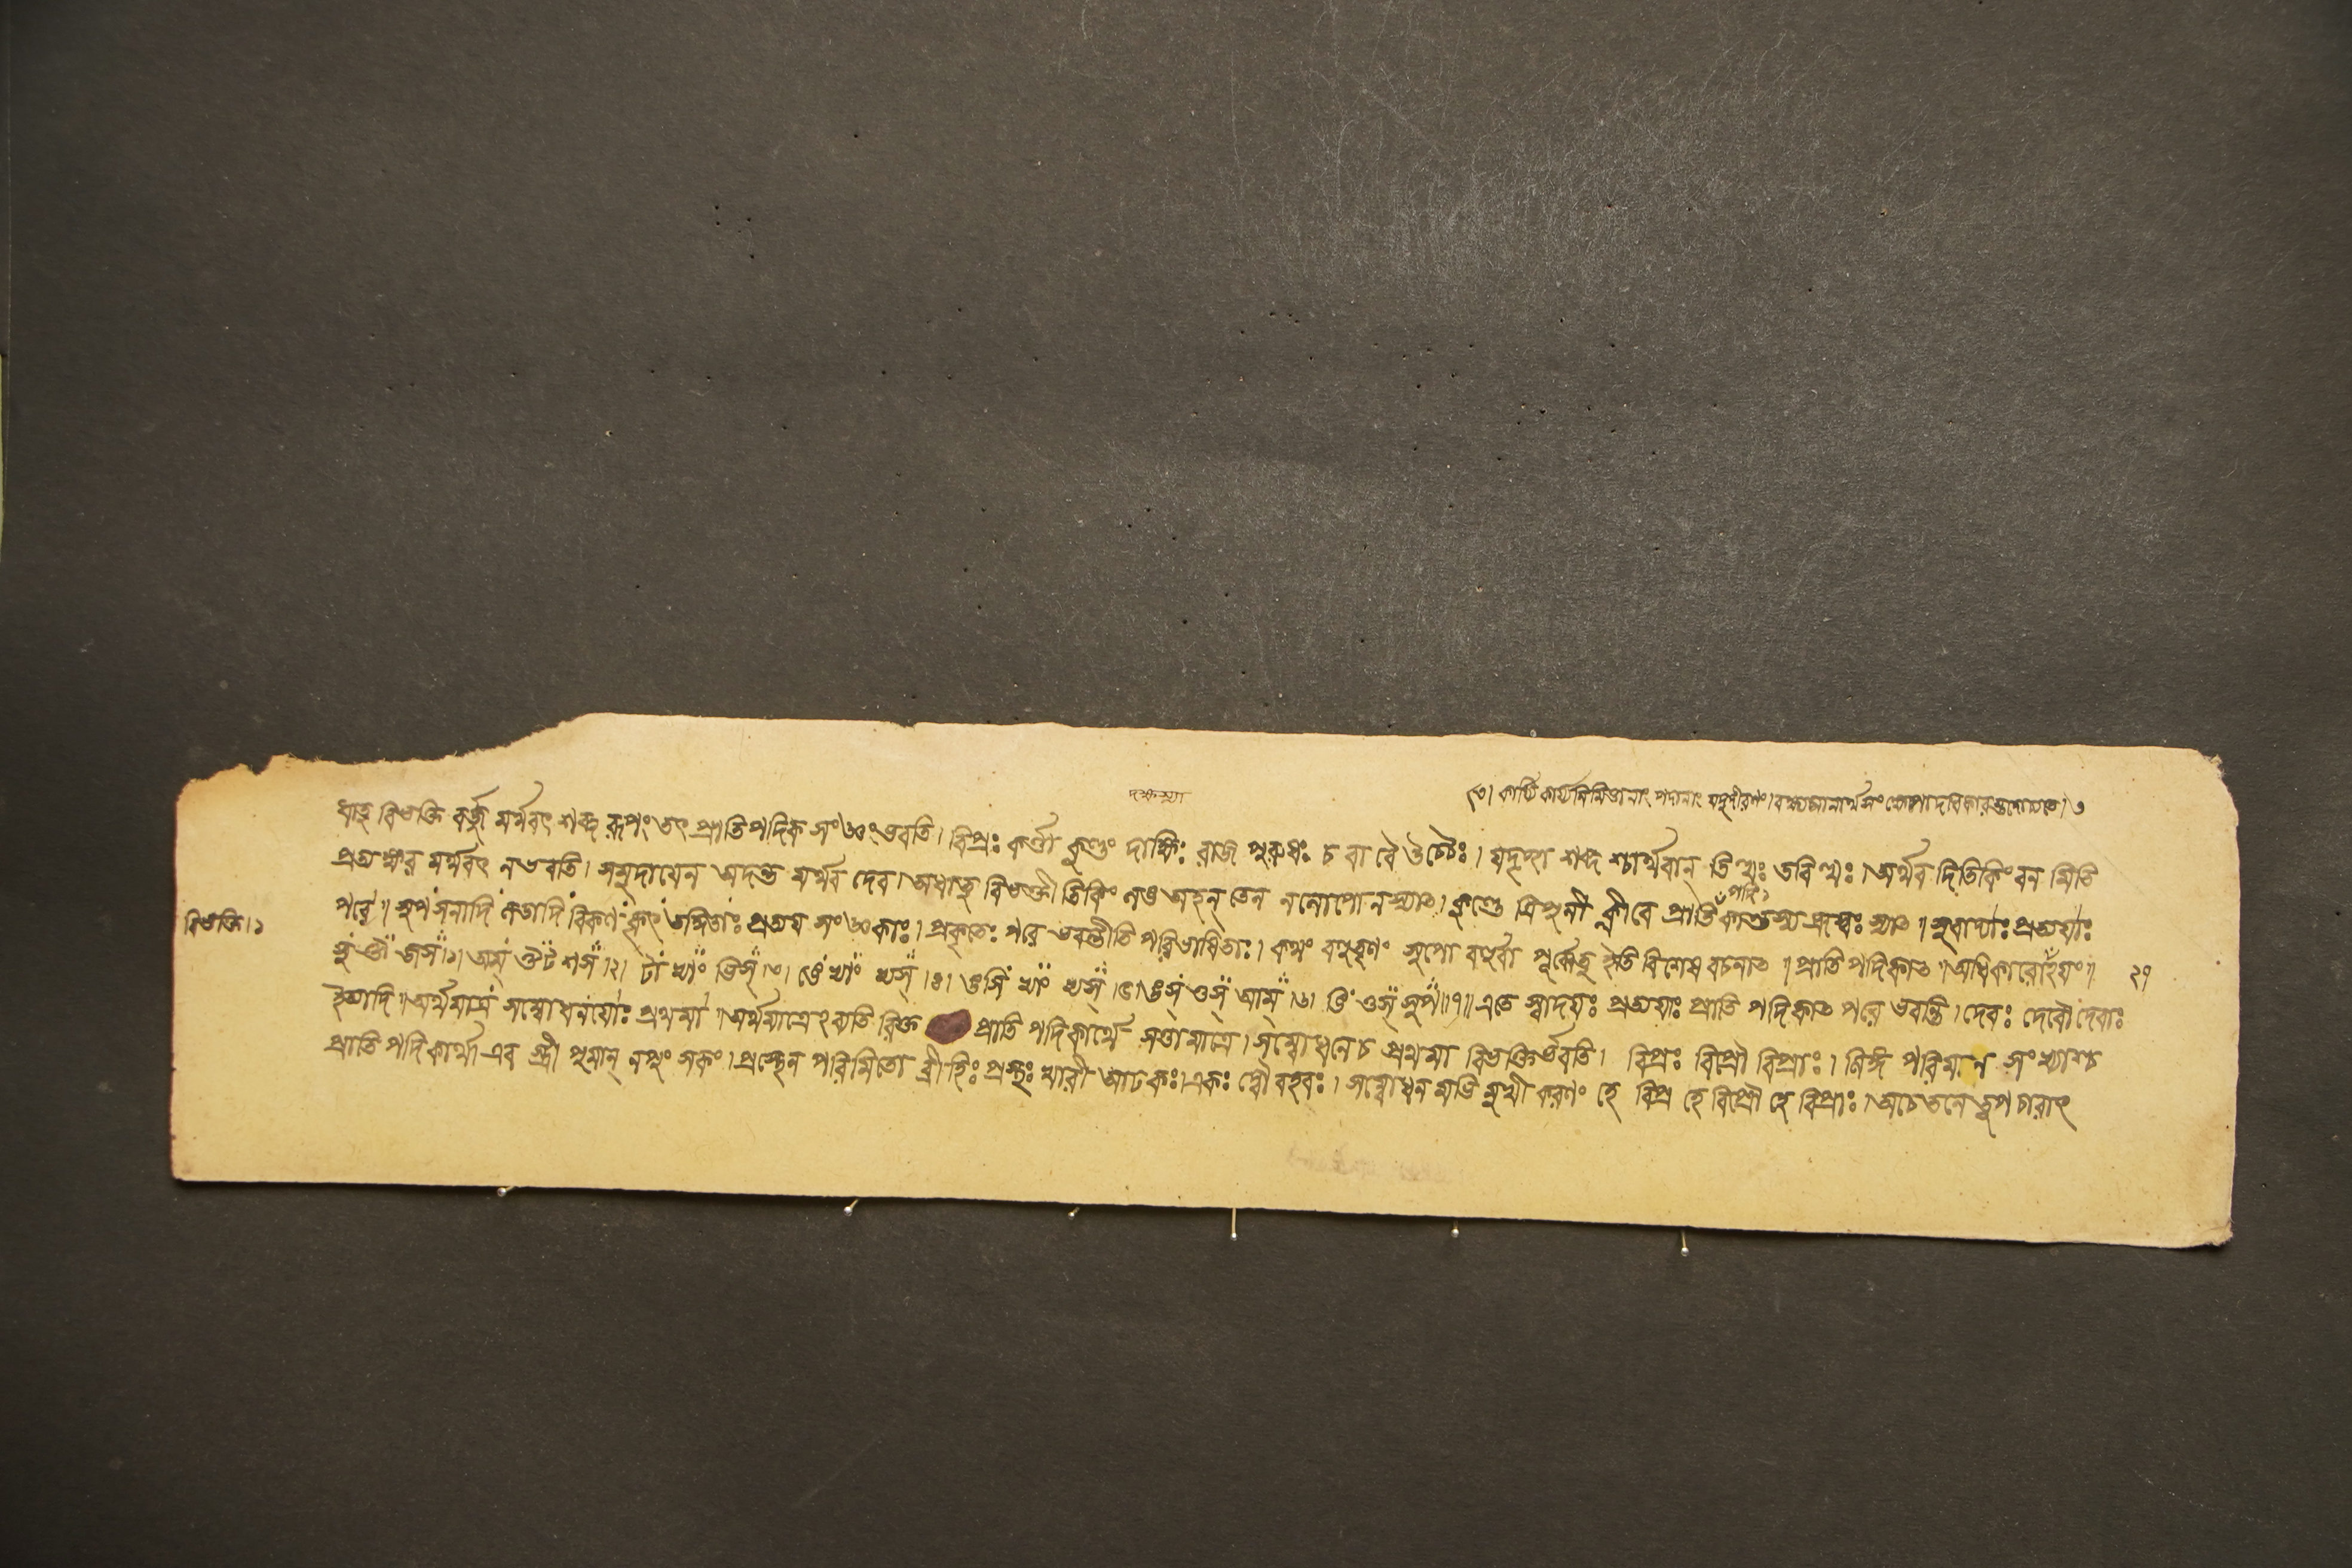 দক্ষস্যা
।৩। কার্য্যি কার্য্যনিমিত্তানাং পদানাং যদুদীরণং। বক্ষ্যমানার্থসং
ধাতু বিভক্তি বর্জ্জ মর্থবৎ শব্দ রূপং তৎ প্রাতিপদিক সংজ্ঞং ভবতি। বিপ্রঃ কর্ত্তা কুণ্ডং দাক্ষিঃ রাজ পুরুষঃ চ বা বৈ উচ্চৈঃ। যদৃচ্ছা শব্দ শ্চার্থবান্ ডিত্থঃ ডবিত্থঃ। অর্থব দিতি কিং বন মিতি
প্রত্যক্ষর মর্থবৎ ন ভবতি। সমুদায়েন অদন্ত মর্থব দেব। অধাতু বিভক্তী তি কিং অহন্ তেন নলোপো ন স্যাৎ। কুণ্ডে ক্লীবে প্রাতিপদিকান্তস্য হ্রস্বঃ স্যাৎ॥ সুবাদ্যাঃ প্রত্যয়াঃ
বিভক্তি। ১
পরে॥ সুপ্ সনাদি তদ্ধিতাঃ প্রত্যয় সংজ্ঞকাঃ। প্রকৃতেঃ পরে ভবন্তীতি পরিভাষিতাঃ। কথং বহুতৃণং সুপো বহুর্বা পূর্ব্বেতু ইতি বিশেষ বচনাৎ॥ প্রাতি পদিকাৎ॥ অধিকারোঽয়ং॥
২৭
সু ঔ জস্।১। অম্ ঔট শস্।২। টা ভ্যাং ভিস্।৩। ঙে ভ্যাং ভ্যস্।৪। ঙসি ভ্যাং ভ্যস্।৫। ঙস্ ওস্ আম্।৬। ঙি ওস্ সুপ্॥৭॥ এতে স্বাদয়ঃ প্রত্যয়াঃ প্রাতি পদিকাৎ পরে ভবন্তি। দেবঃ দেবৌ দেবাঃ
ইত্যাদি॥ অর্থমাত্র সম্বোধনয়োঃ প্রথমা॥ অর্থমাত্রেঽব্যতি রিক্ত প্রাতি পদিকার্থে সত্তা মাত্রে। সম্বোধনে চ প্রথমা বিভক্তির্ভবতি। বিপ্রঃ বিপ্রৌ বিপ্রাঃ। লিঙ্গ পরিমান সংখ্যাশ্চ
প্রাতি পদিকার্থা এব স্ত্রী পুমান্ নপুং সকং। প্রস্থেন পরিমিতো ব্রীহিঃ প্রস্থঃ খারী আঢকঃ। একঃ দ্বৌ বহবঃ। সম্বোধন মভি মুখী করণং হে বিপ্র হে বিপ্রৌ হে বিপ্রাঃ। অচেতনে তুপ চারাৎ